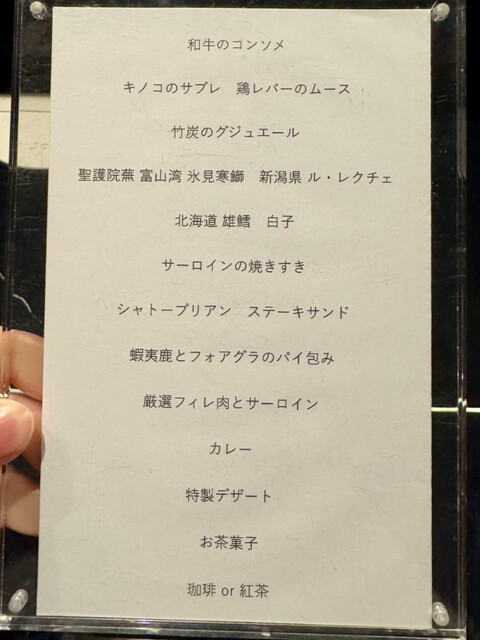 和牛のコンソメ
キノコのサブレ　鶏レバーのムース
竹炭のグジュエール
聖護院蕪 富山湾 氷見寒鰤　新潟県 ル・レクチェ
北海道 雄鱈　白子
サーロインの焼きすき
シャトーブリアン　ステーキサンド
蝦夷鹿とフォアグラのパイ包み
厳選フィレ肉とサーロイン
カレー
特製デザート
お茶菓子
珈琲 or 紅茶